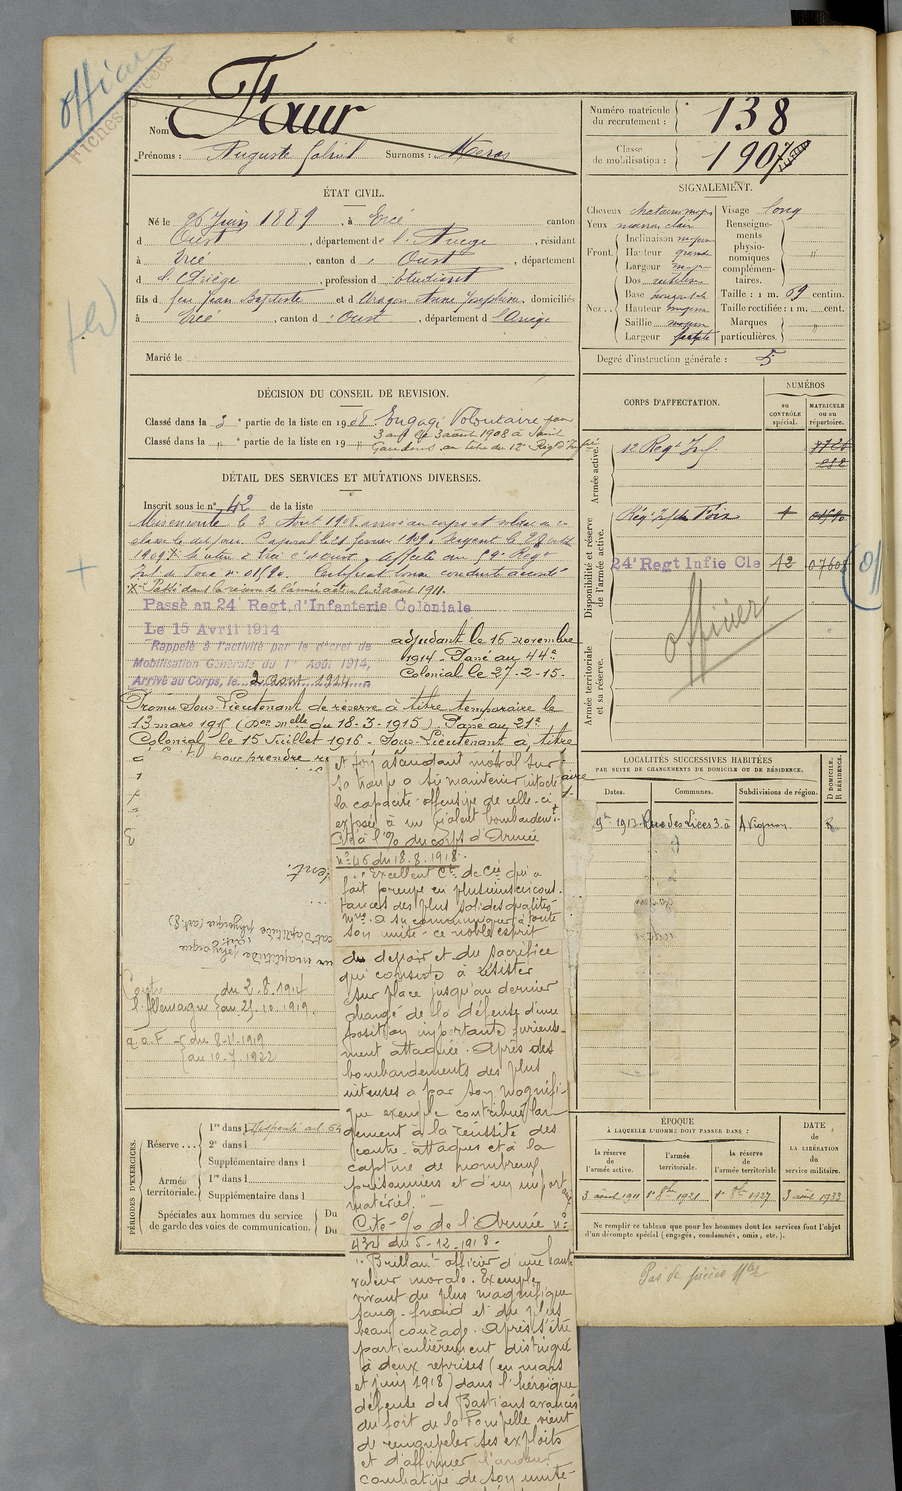 officier
Fiches
Nom Faur
Prénoms : Auguste Gabriel Surnoms :
Numéro matricule
du recrutement : 138
Classe
de mobilisation : 1907
ÉTAT CIVIL.
Né le 26 Juin 1889, à Ercé canton
d Oust, département de l'Ariège, résidant
à Ercé, canton d Oust, département
d l'Ariège, profession d étudiant
fils d feu Jean Baptiste et d Aragon Anne Josephine, domiciliés
à Ercé, canton d Oust, département d l'Ariège
Marié le
SIGNALEMENT.
Cheveux chatain moyen
Yeux marron clair
Front. Inclinaison moyen
Hauteur grande
Largeur moy
Nez.. Dos
Base
Hauteur moyen
Saillie moyen
Largeur
Visage long
Renseigne-
ments
physio-
nomiques
complémen-
taires. "
Taille : 1 m. 69 centim.
Taille rectifiée : 1 m. cent.
Marques
particulières. "
Degré d'instruction générale : 5
DÉCISION DU CONSEIL DE REVISION.
Classé dans la 3 e partie de la liste en 1908. Engagé Volontaire pour
3 ans le 3 août 1908 à Saint
Classé dans la " e partie de la liste en 19 "
Gaudens au titre du 12e Régt d'Infie
DÉTAIL DES SERVICES ET MUTATIONS DIVERSES.
Inscrit sous le n° 42 de la liste
Mis en route le 3 Août 1908 arrivé au corps et soldat de 2e
classe le dit jour. Caporal le février 1909. Sergent le
1909. X se retire à Ercé Ct d'Oust. Affecté au 59e Régt
Inf de Foix n° 01590. Certificat bonne conduite accordé
X Passé dans la réserve de l'armée active le 3 août 1911.
Passé au 24e Regt. d'Infanterie Coloniale
Le 15 Avril 1914
Rappelé à l'activité par le décret de
Mobilisation Générale du 1er Août 1914,
Arrivé au Corps, le 2 Août 1914
adjudant le 16 novembre
1914 - Passé au 44e
Colonial le 27-2-15-
Promu Sous-Lieutenant de réserve à titre temporaire le
13 mars 1915 (Don melle du 18-3-1915). Passé au 21e
Colonial le 15 Juillet 1916 - Sous-Lieutenant à titre
pour prendre
et son ascendant moral sur
sa troupe a su maintenir intacte
la capacité offensive de celle-ci
exposée à un violent bombardemt.
Cité à l'% du corps d'Armée
n° 46 du 18.8.1918.
"Excellent Ct de Cie qui a
fait preuve en plusieurs circons-
tances des plus solides qualités
mres. a su communiquer à toute
son unité ce noble esprit
du devoir et du sacrifice
qui consiste à résister
sur place jusqu'au dernier
chargé de la défense d'une
position importante furieuse-
ment attaquée. Après des
bombardements des plus
intenses a par son magnifi-
que exemple contribué lar-
gement à la réussite des
contre-attaques et à la
capture de nombreux
prisonniers et d'un important
matériel." -
Cité - % de l'Armée n°
434 du 5-12-1918 -
"Brillant officier d'une haute
valeur morale. Exemple
vivant du plus magnifique
sang-froid et du plus
beau courage. Après s'être
particulièrement distingué
à deux reprises (en mars
et juin 1918) dans l'héroïque
défense des Bastions avancés
du fort de la Pompelle vient
de renouveler ses exploits
et d'affirmer l'ardeur
combative de son unité-
d'aptitude physique (art. 8)
inaptitude physique
Contre du 2.8.1914
l'Allemagne au 25.10.1919.
A.O.F. du 8-11-1919
au 10-7-1922
CORPS D'AFFECTATION.
NUMÉROS
au
CONTRÔLE
spécial.
MATRICULE
ou au
répertoire.
Armée active.
12 Régt Inf.
Disponibilité et réserve
de l'armée active.
Régt Inf de Foix 1 01590
24e Regt Infie Cle 42
officier
Armée territoriale
et sa réserve.
LOCALITÉS SUCCESSIVES HABITÉES
PAR SUITE DE CHANGEMENTS DE DOMICILE OU DE RÉSIDENCE.
D DOMICILE.
R RÉSIDENCE.
Dates. Communes. Subdivisions de région.
9bre 1912 Rue des Lices 3. à Avignon R
PÉRIODES D'EXERCICES.
Réserve ... 1re dans l
2e dans l
Supplémentaire dans l
Armée
territoriale. 1re dans l
Supplémentaire dans l
Spéciales aux hommes du service
de garde des voies de communication. Du
Du
ÉPOQUE
À LAQUELLE L'HOMME DOIT PASSER DANS :
la réserve
de
l'armée active. l'armée
territoriale. la réserve
de
l'armée territoriale
DATE
de
LA LIBÉRATION
du
service militaire.
3 août 1911 1er 8bre 1921 1er 8bre 1927 3 août 1933
Ne remplir ce tableau que pour les hommes dont les services font l'objet
d'un décompte spécial (engagés, condamnés, omis, etc.).
Pas de pièces